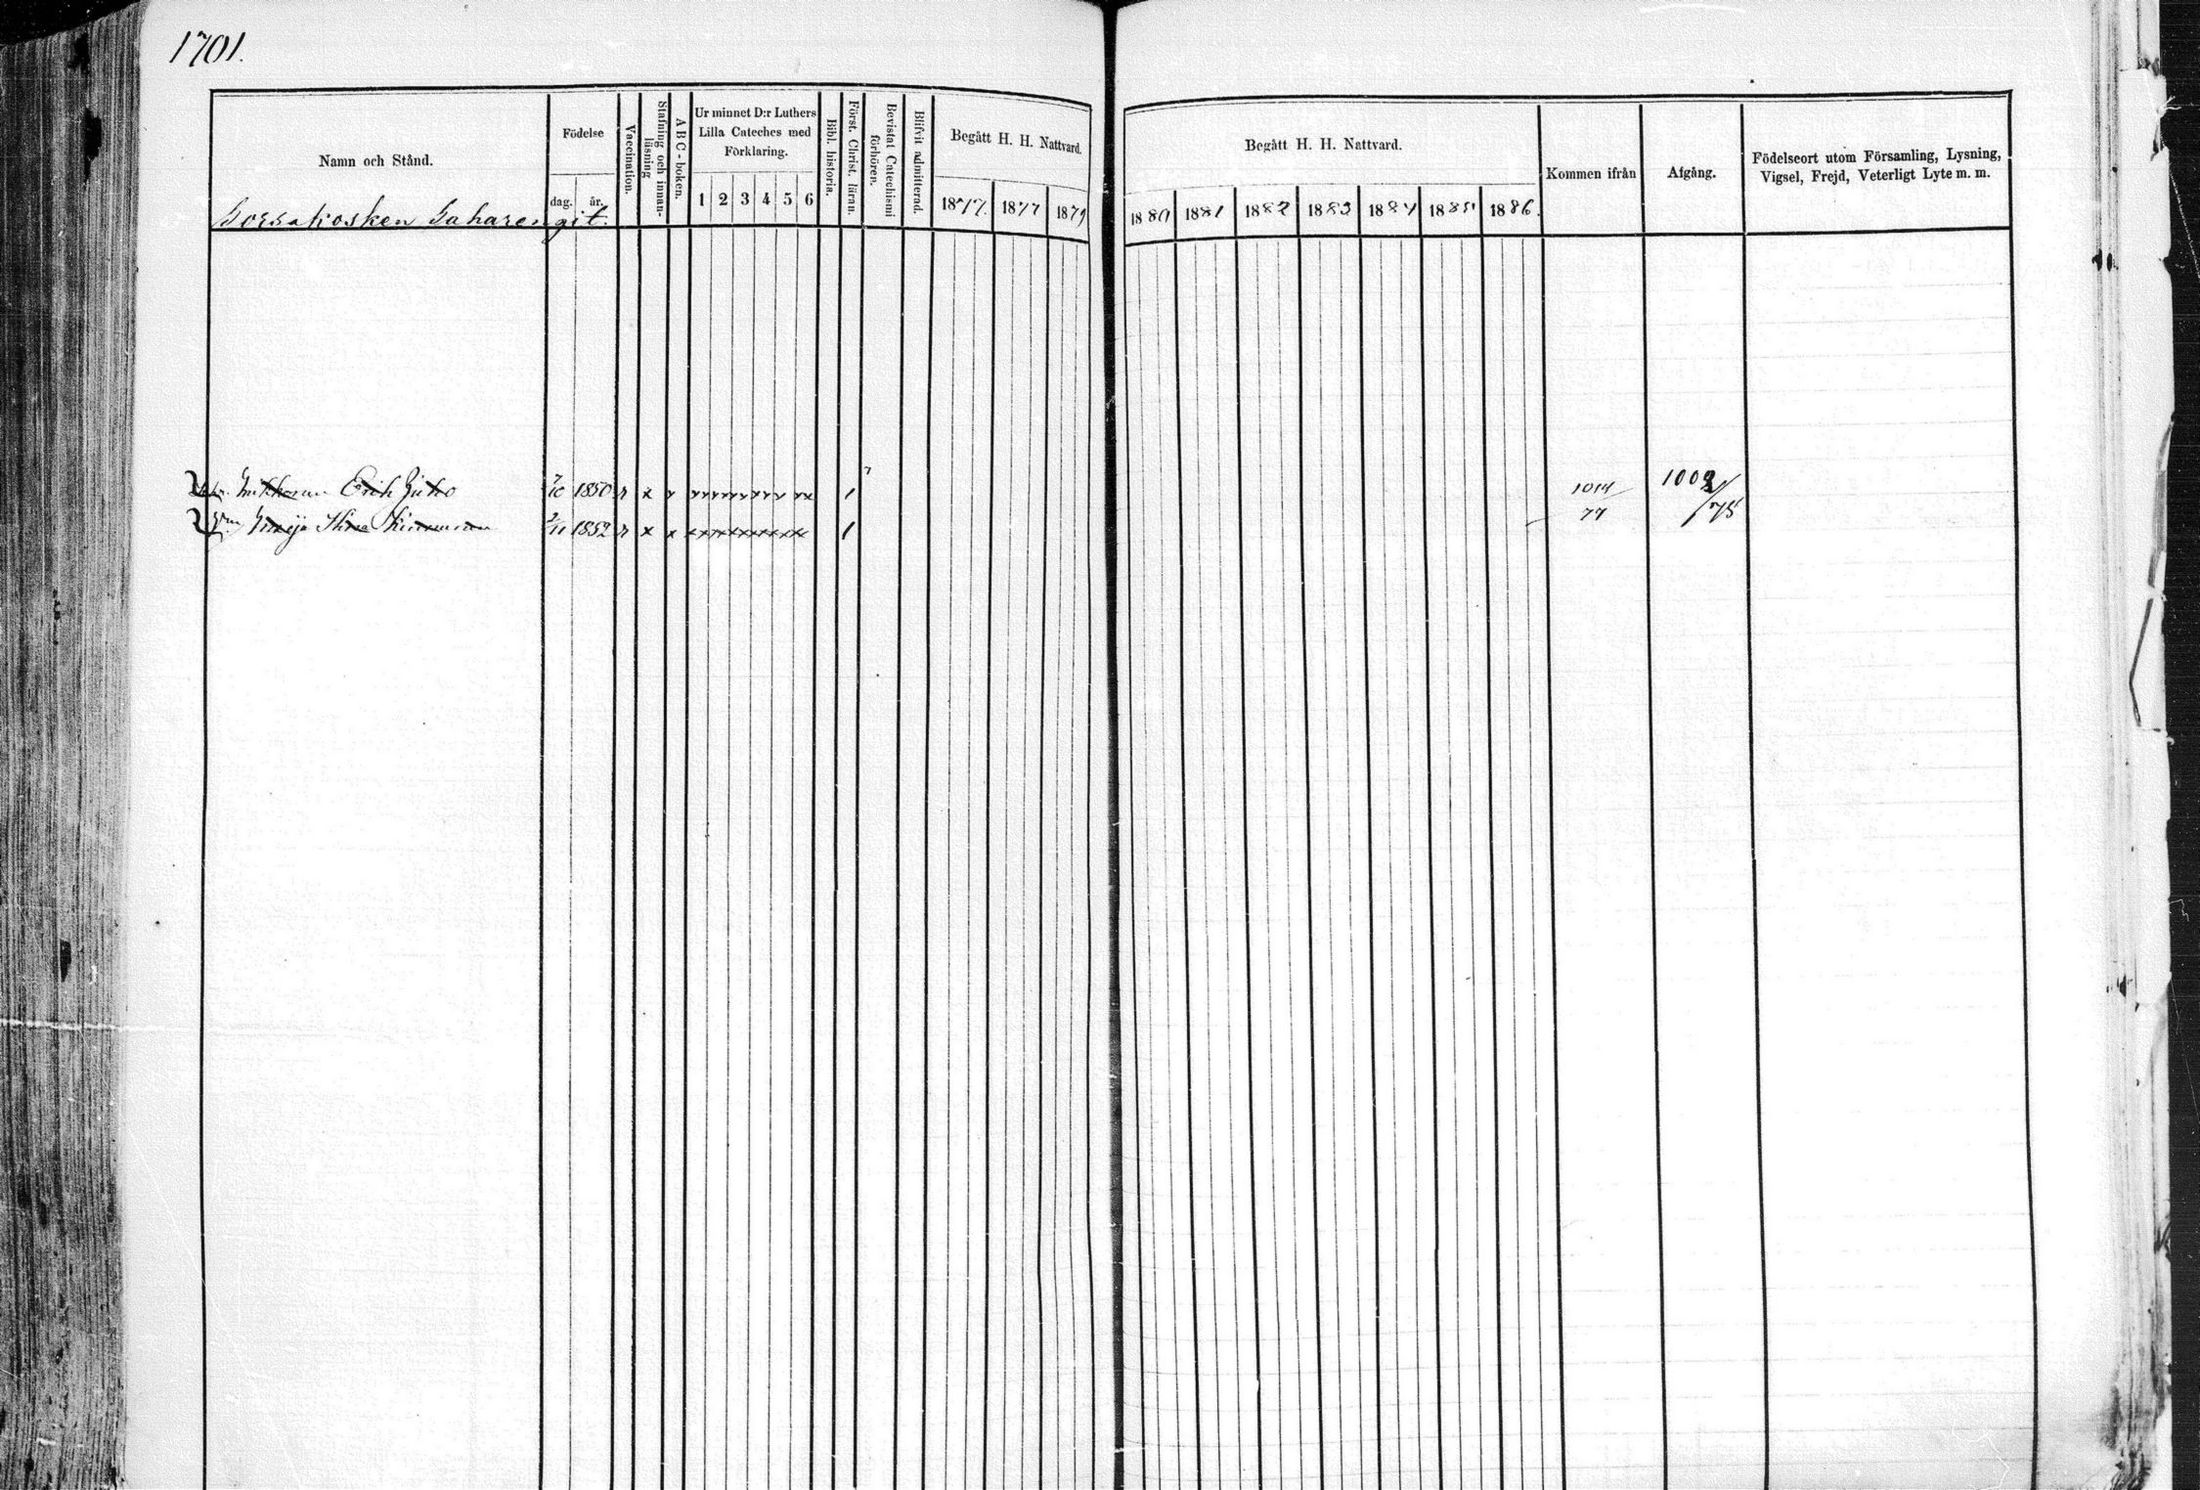 1701.
Namn och Stånd.
Födelse
dag.
år.
Vaccination.
Stafning och innanläsning
ABC-boken.
Ur minnet D:r Luthers
Lilla Cateches med
Förklaring.
1 2 3 4 5 6
Bibl. historia.
Först. Christ. läran.
Bevistat Catechismi
förhören.
Blifvit admitterad.
Begått H. H. Nattvard.
1877. 1877 1879
Begått H. H. Nattvard.
1880 1881 1882 1883 1884 1885 1886.
Kommen ifrån
Afgång.
Födelseort utom Församling, Lysning,
Vigsel, Frejd, Veterligt Lyte m. m.
Erik 7/10 1850 1014/77 1002/78
2/11 1852